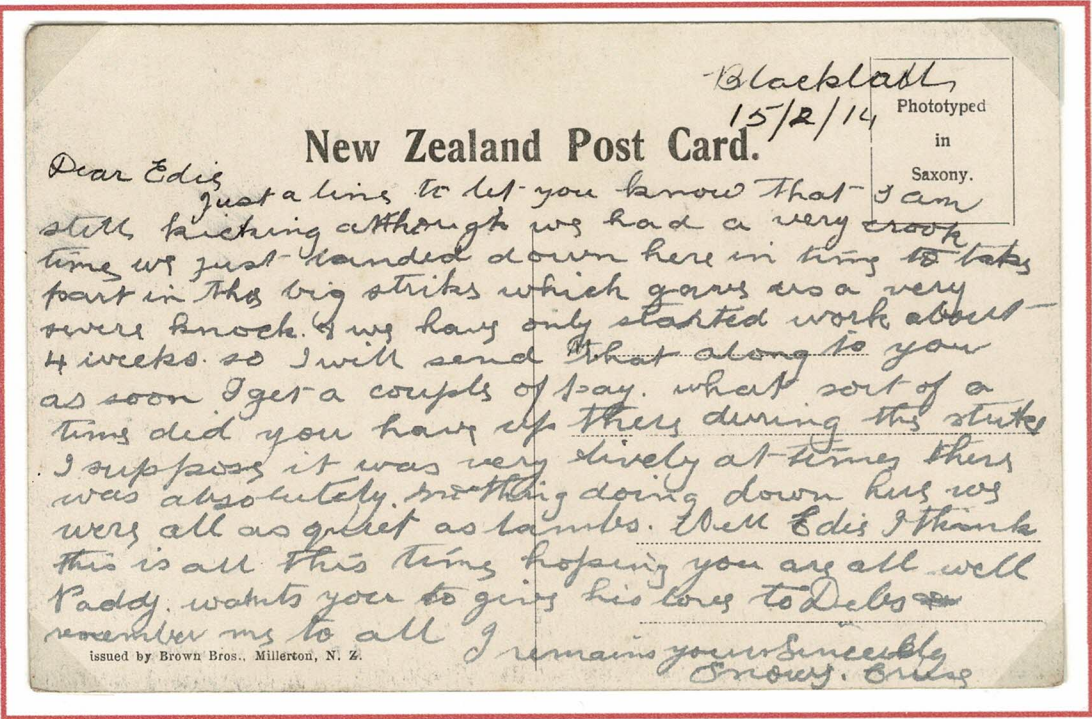 Blackball
15/2/14
Phototyped
in
Saxony.
New Zealand Post Card.
Dear Edie
Just a line to let you know that I am
still kicking although we had a very crook
time we just landed down here in time to take
part in the big strike which gave us a very
severe knock. & we have only started work about
4 weeks. so I will send that along to you
as soon I get a couple of pay. what sort of a
time did you have up there during the strike
I suppose it was very lively at times there
was absolutely nothing doing down here we
were all as quiet as lambs. Well Edie I think
this is all this time hoping you are all well
Paddy. wants you to give his love to Debs
remember me to all I remains yours Sincerely
issued by Brown Bros., Millerton, N. Z.
Snowy.